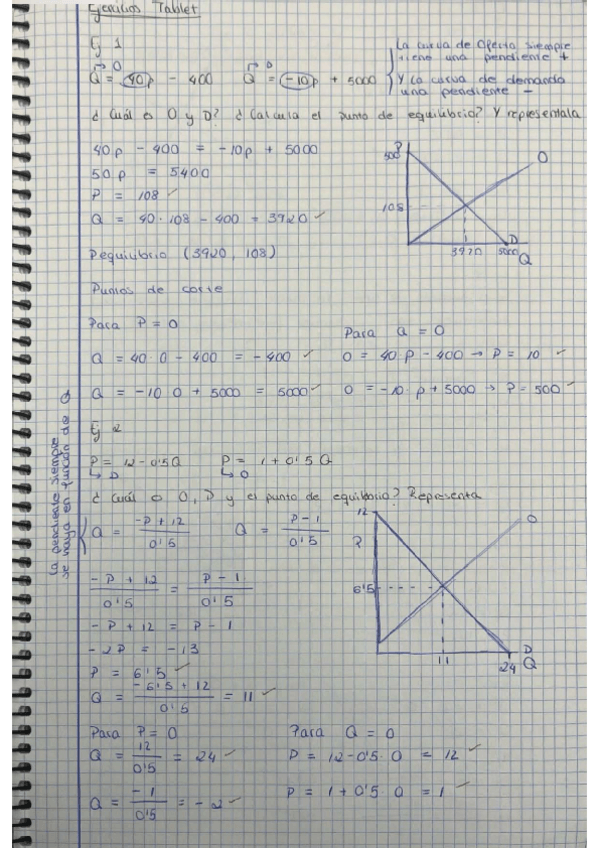 Ejercicios Tablet
Ej 1
O D
Q = 40p - 400 Q = -10p + 5000
La curva de oferta siempre
tiene una pendiente +
Y la curva de demanda
una pendiente -
¿ Cuál es O y D? ¿ Calcula el punto de equilibrio? Y represéntala
40p - 400 = -10p + 5000
50p = 5400
P = 108 ✓
Q = 40 · 108 - 400 = 3920 ✓
P
500
O
108
D
3920 5000 Q
Pequilibrio (3920, 108)
Puntos de corte
Para P = 0
Q = 40 · 0 - 400 = - 400 ✓
Q = -10 · 0 + 5000 = 5000 ✓
Para Q = 0
0 = 40 · P - 400 → P = 10 ✓
0 = -10 · p + 5000 → P = 500 ✓
Ej 2
P = 12 - 0'5Q P = 1 + 0'5Q
↳ D ↳ O
¿ Cuál es O, D y el punto de equilibrio? Representa
la pendiente siempre
se haya en función de Q
Q = -P + 12 / 0'5 Q = P - 1 / 0'5
-P + 12 / 0'5 = P - 1 / 0'5
-P + 12 = P - 1
-2P = -13
P = 6'5 ✓
Q = -6'5 + 12 / 0'5 = 11 ✓
12
P
O
6'5
D
11 24 Q
Para P = 0
Q = 12 / 0'5 = 24 ✓
Q = -1 / 0'5 = -2 ✓
Para Q = 0
P = 12 - 0'5 · 0 = 12 ✓
P = 1 + 0'5 · 0 = 1 ✓